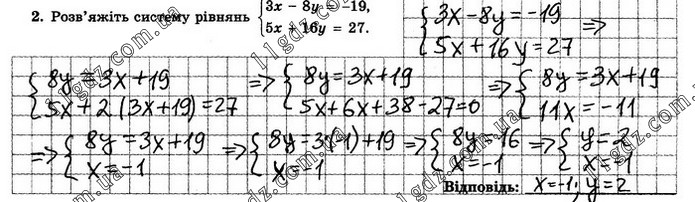 2. Розв'яжіть систему рівнянь { 3x − 8y = −19, 5x + 16y = 27.
{ 3x − 8y = −19 5x + 16y = 27 =>
{ 8y = 3x + 19 5x + 2(3x + 19) = 27 => { 8y = 3x + 19 5x + 6x + 38 − 27 = 0 => { 8y = 3x + 19 11x = −11
=> { 8y = 3x + 19 x = −1 => { 8y = 3(−1) + 19 x = −1 => { 8y = 16 x = −1 => { y = 2 x = −1
Відповідь: x = −1; y = 2
11gdz.com.ua